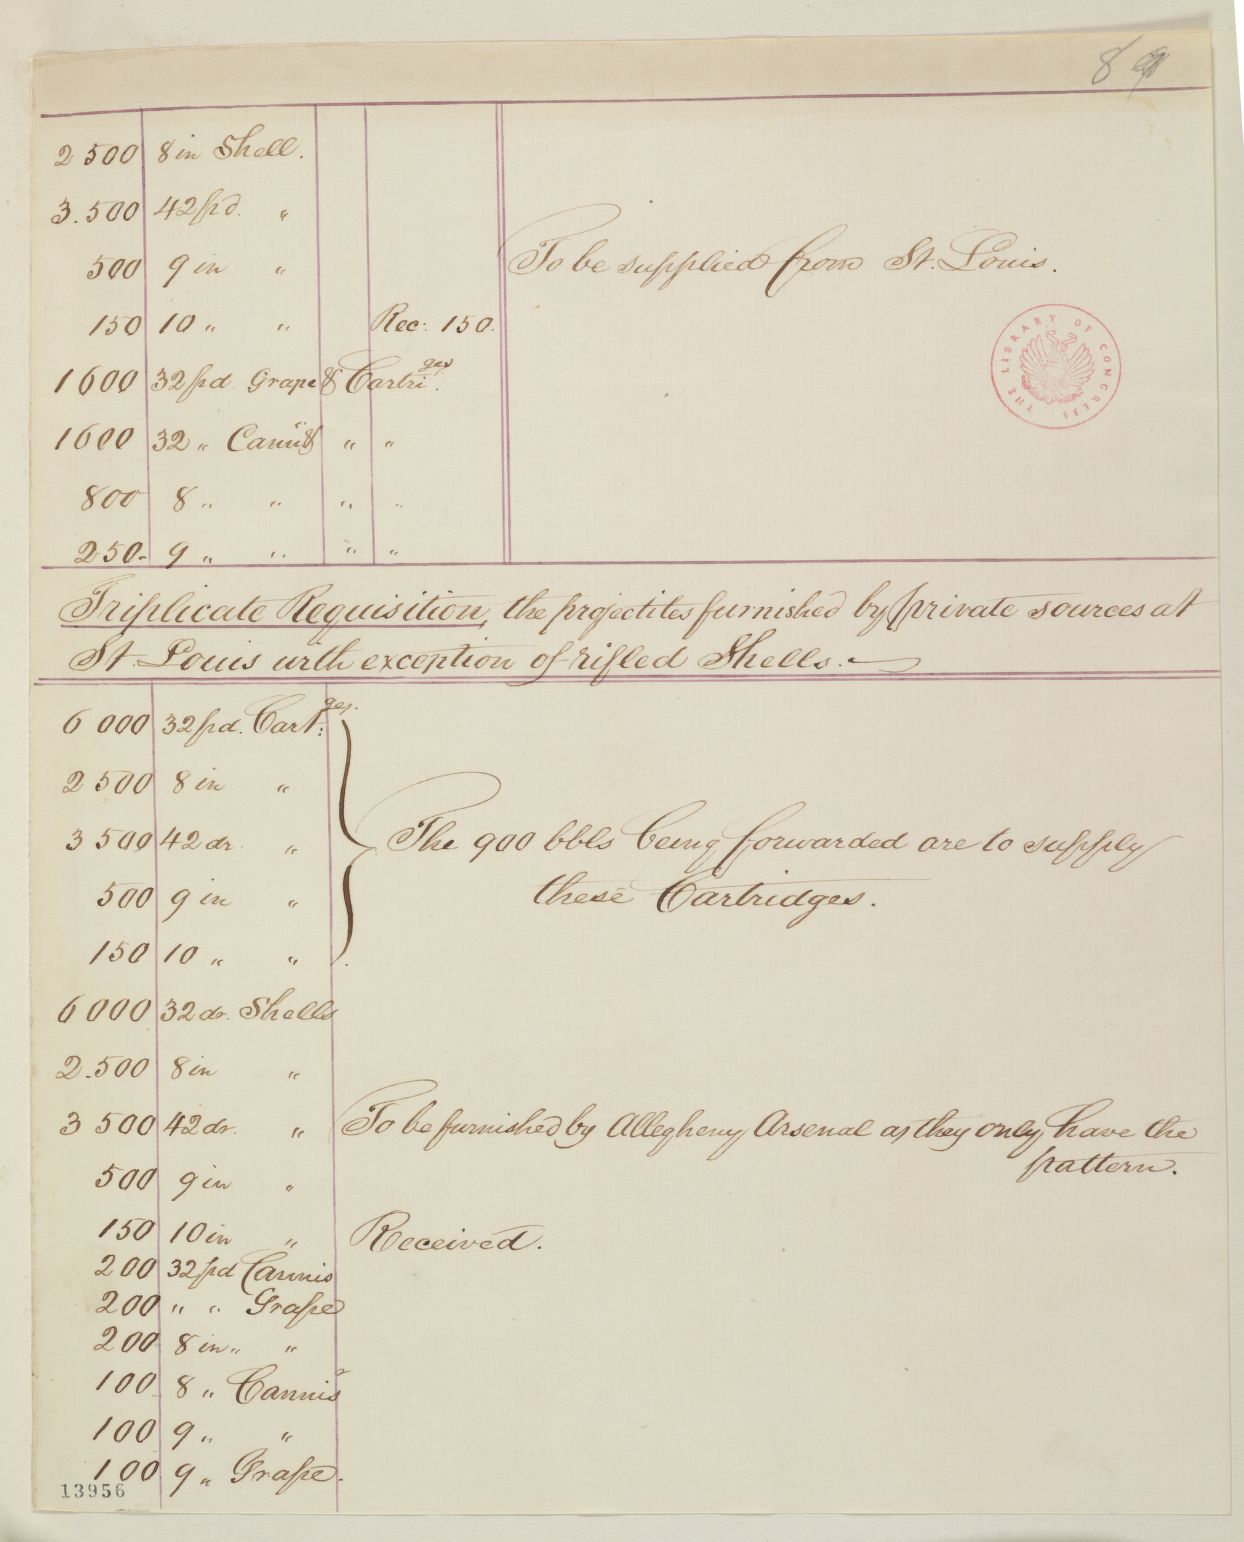 8 9
2 500 8 in Shell.
3.500 42 pd. "
500 9 in "
To be supplied from St. Louis.
150 10 " " Rec: 150.
THE LIBRARY OF CONGRESS
1600 32 pd. Grape & Cartri ges.
1600 32 " & " "
800 8 " " " "
250- 9 " " " "
Triplicate Requisition, the projectiles furnished by private sources at
St. Louis with exception of rifled Shells. —
6 000 32 pd. Cart: ges.
2 500 8 in "
3 500 42 dr. "
The 900 bbls being forwarded are to supply
500 9 in "
these Cartridges.
150 10 " "
6000 32 dr. Shells
2.500 8 in "
3 500 42 dr. " To be furnished by Allegheny Arsenal as they only have the
pattern.
500 9 in "
150 10 in " Received.
200 32 pd Cannis
200 " " Grape
200 8 in " "
100 8 " Cannis
100 9 " "
100 9 " Grape.
13956